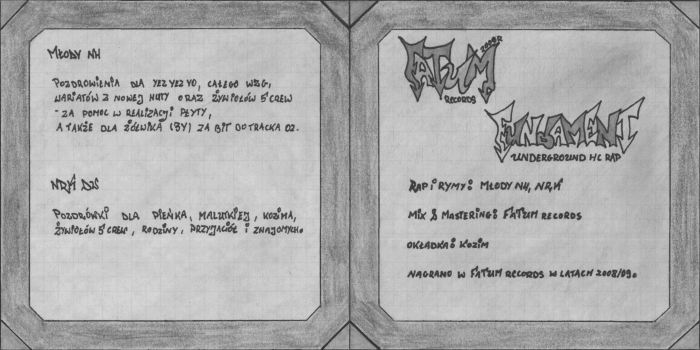 Młody NH
Pozdrowienia dla Yez Yez Yo, całego WSG,
wariatów z Nowej Huty oraz Żywiołów 5'Crew
- za pomoc w realizacji płyty,
a także dla Żółwika (3Y) za bit do tracka 02.
Pozdrówki dla Pieńka, Malutkiej, Kozima,
Żywiołów 5'Crew, rodziny, przyjaciół i znajomych.
FATUM 2009R
RECORDS
FUNDAMENT
UNDERGROUND HC RAP
Rap i rymy: Młody NH,
Mix & Mastering: Fatum Records
Okładka: Kozim
Nagrano w Fatum Records w latach 2008/09.